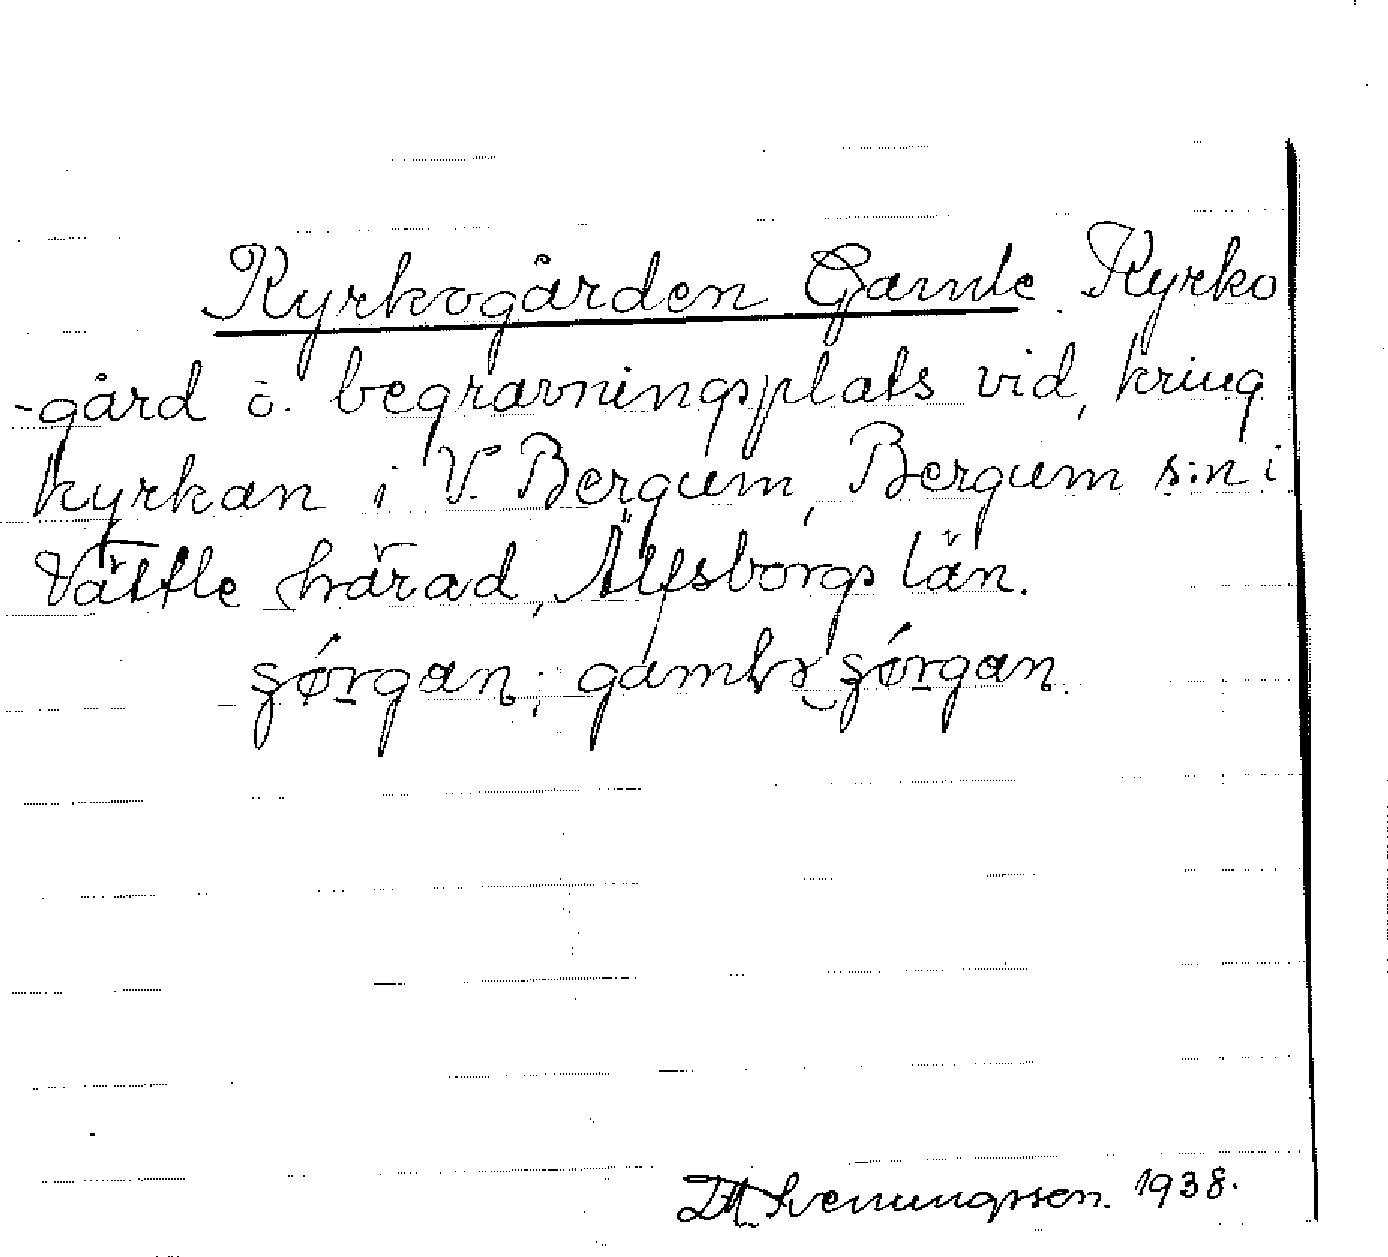 Kyrkogården Gamle. Kyrko
-gård o. begravningsplats vid, kring
kyrkan i V. Bergum, Bergum s:n i
Vättle härad, Älfsborgs län.
Svenungsson. 1938.